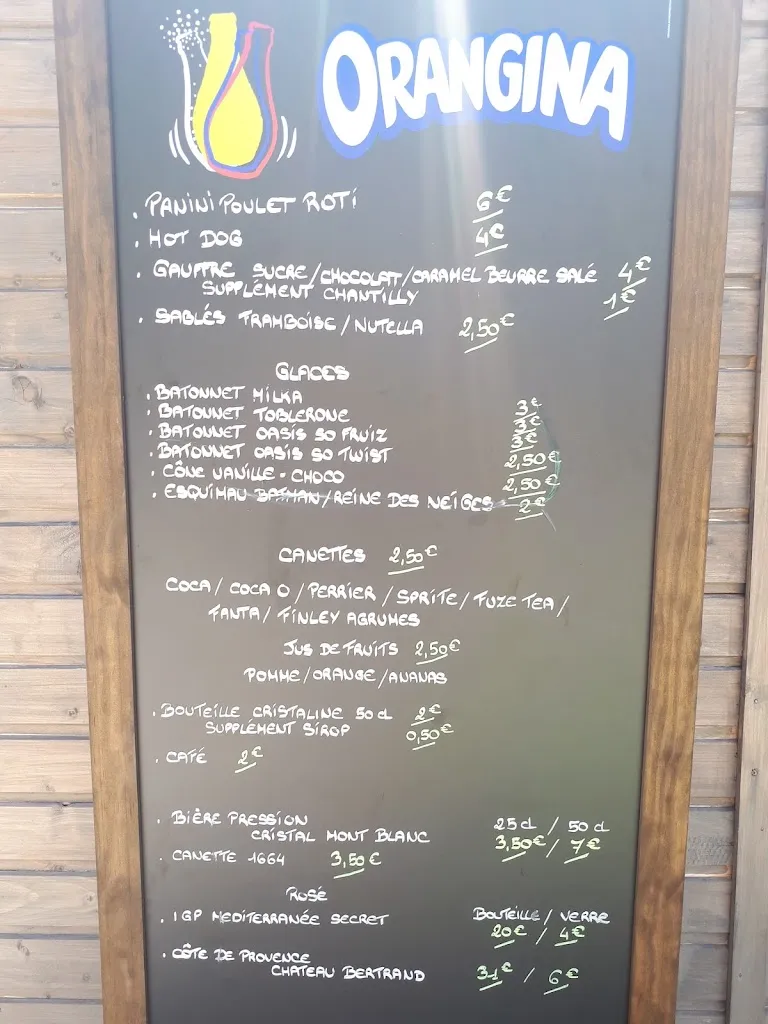 ORANGINA
. PANINI POULET ROTI 6€
. HOT DOG 4€
. GAUFFRE SUCRE/CHOCOLAT/CARAMEL BEURRE SALÉ 4€
SUPPLÉMENT CHANTILLY 1€
. SABLÉS FRAMBOISE/NUTELLA 2,50€
GLACES
. BATONNET MILKA 3€
. BATONNET TOBLERONE 3€
. BATONNET OASIS SO FRUIZ 3€
. BATONNET OASIS SO TWIST 2,50€
. CÔNE VANILLE - CHOCO 2,50€
. ESQUIMAU BATMAN/REINE DES NEIGES 2€
CANETTES 2,50€
COCA/ COCA O /PERRIER /SPRITE/ FUZE TEA/
FANTA/ FINLEY AGRUMES
JUS DE FRUITS 2,50€
POMME/ORANGE/ANANAS
. BOUTEILLE CRISTALINE 50 cl 2€
SUPPLÉMENT SIROP 0,50€
. CAFÉ 2€
. BIÈRE PRESSION 25 cl / 50 cl
CRISTAL MONT BLANC 3,50€/ 7€
. CANETTE 1664 3,50€
ROSÉ
. IGP MEDITERRANÉE SECRET BOUTEILLE / VERRE
20€ / 4€
. CÔTE DE PROVENCE
CHATEAU BERTRAND 31€ / 6€